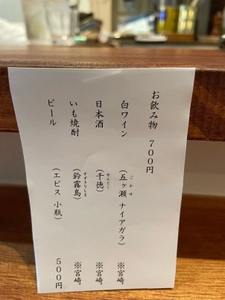 お飲み物 700円
白ワイン (五ヶ瀬 ナイアガラ) ※宮崎
日本酒 (千徳) ※宮崎
いも焼酎 (鈴霧島) ※宮崎
ビール (エビス 小瓶) 500円